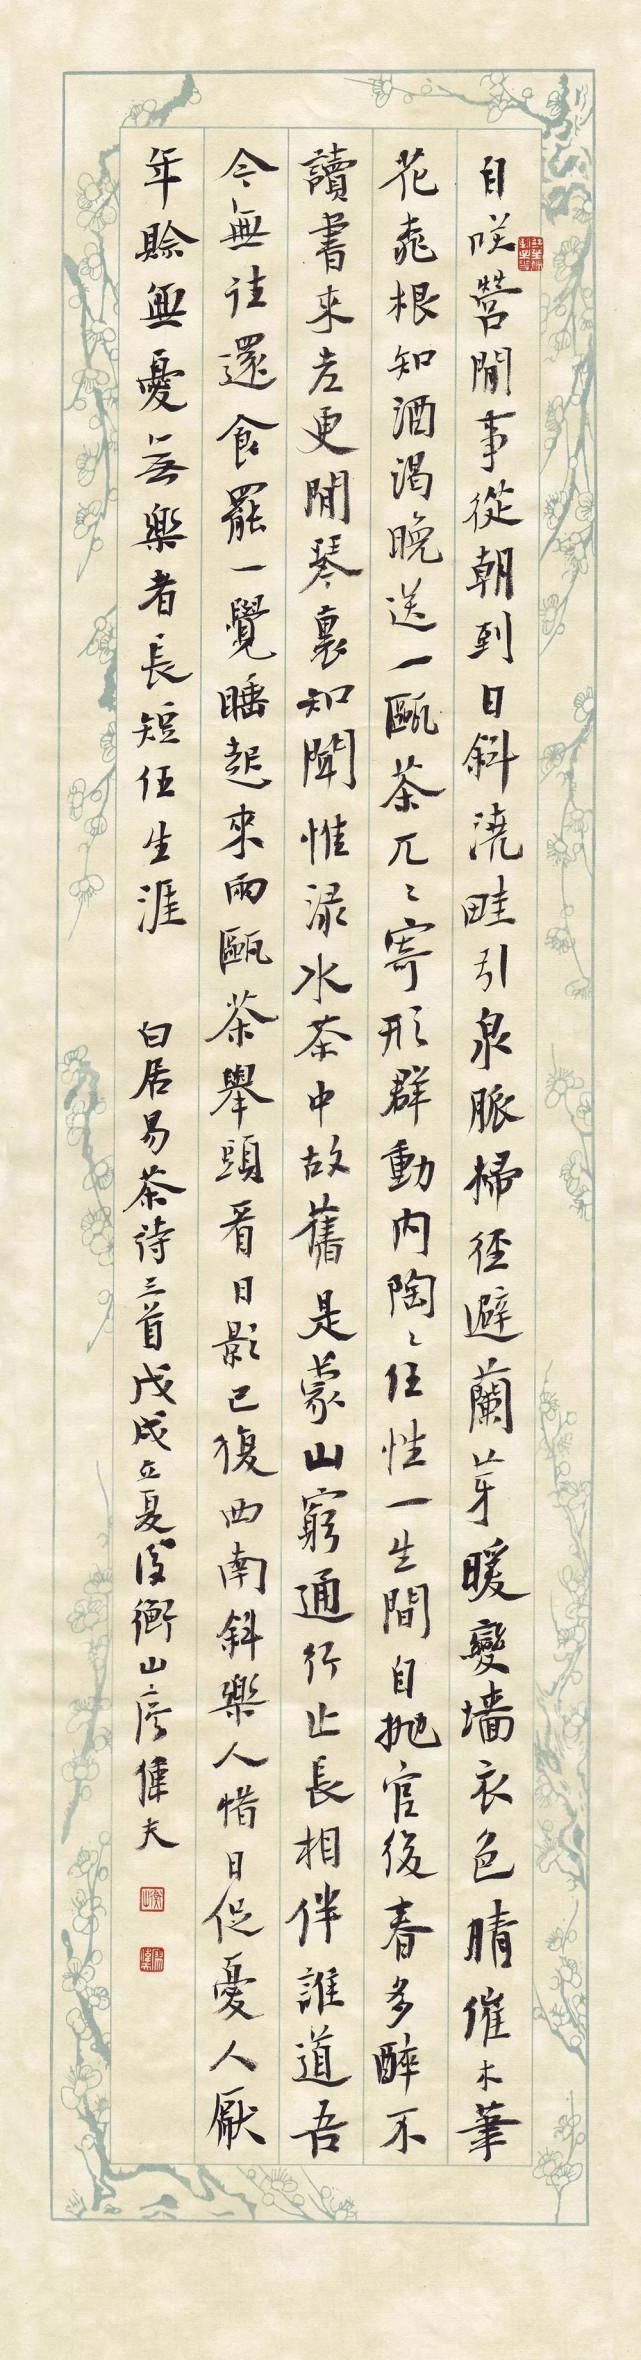 自咲營閒事從朝到日斜澆畦引泉脈掃徑避蘭芽暖變墻衣色晴催木筆
花桃根知酒渴晚送一甌茶兀〻寄形群動內陶〻任性一生間自拋官後春多醉不
讀書來老更閒琴裏知聞惟淥水茶中故舊是蒙山窮通行止長相伴誰道吾
今無往還食罷一覺睡起來兩甌茶舉頭看日影已復西南斜樂人惜日促憂人厭
年賒無憂無樂者長短任生涯 白居易茶詩三首戊戌立夏後衡山房偉夫